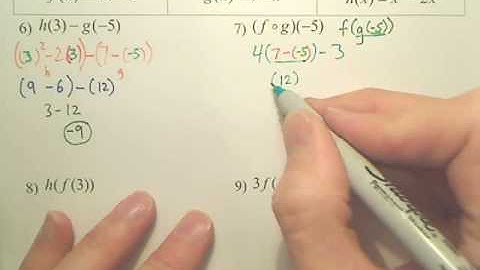 6) h(3) − g(−5)
((3)² − 2(3)) − (7 − (−5))
h g
(9 − 6) − (12)
3 − 12
−9
7) (f ∘ g)(−5) f(g(−5))
4(7 − (−5)) − 3
(12)
8) h(f(3))
9) 3f(